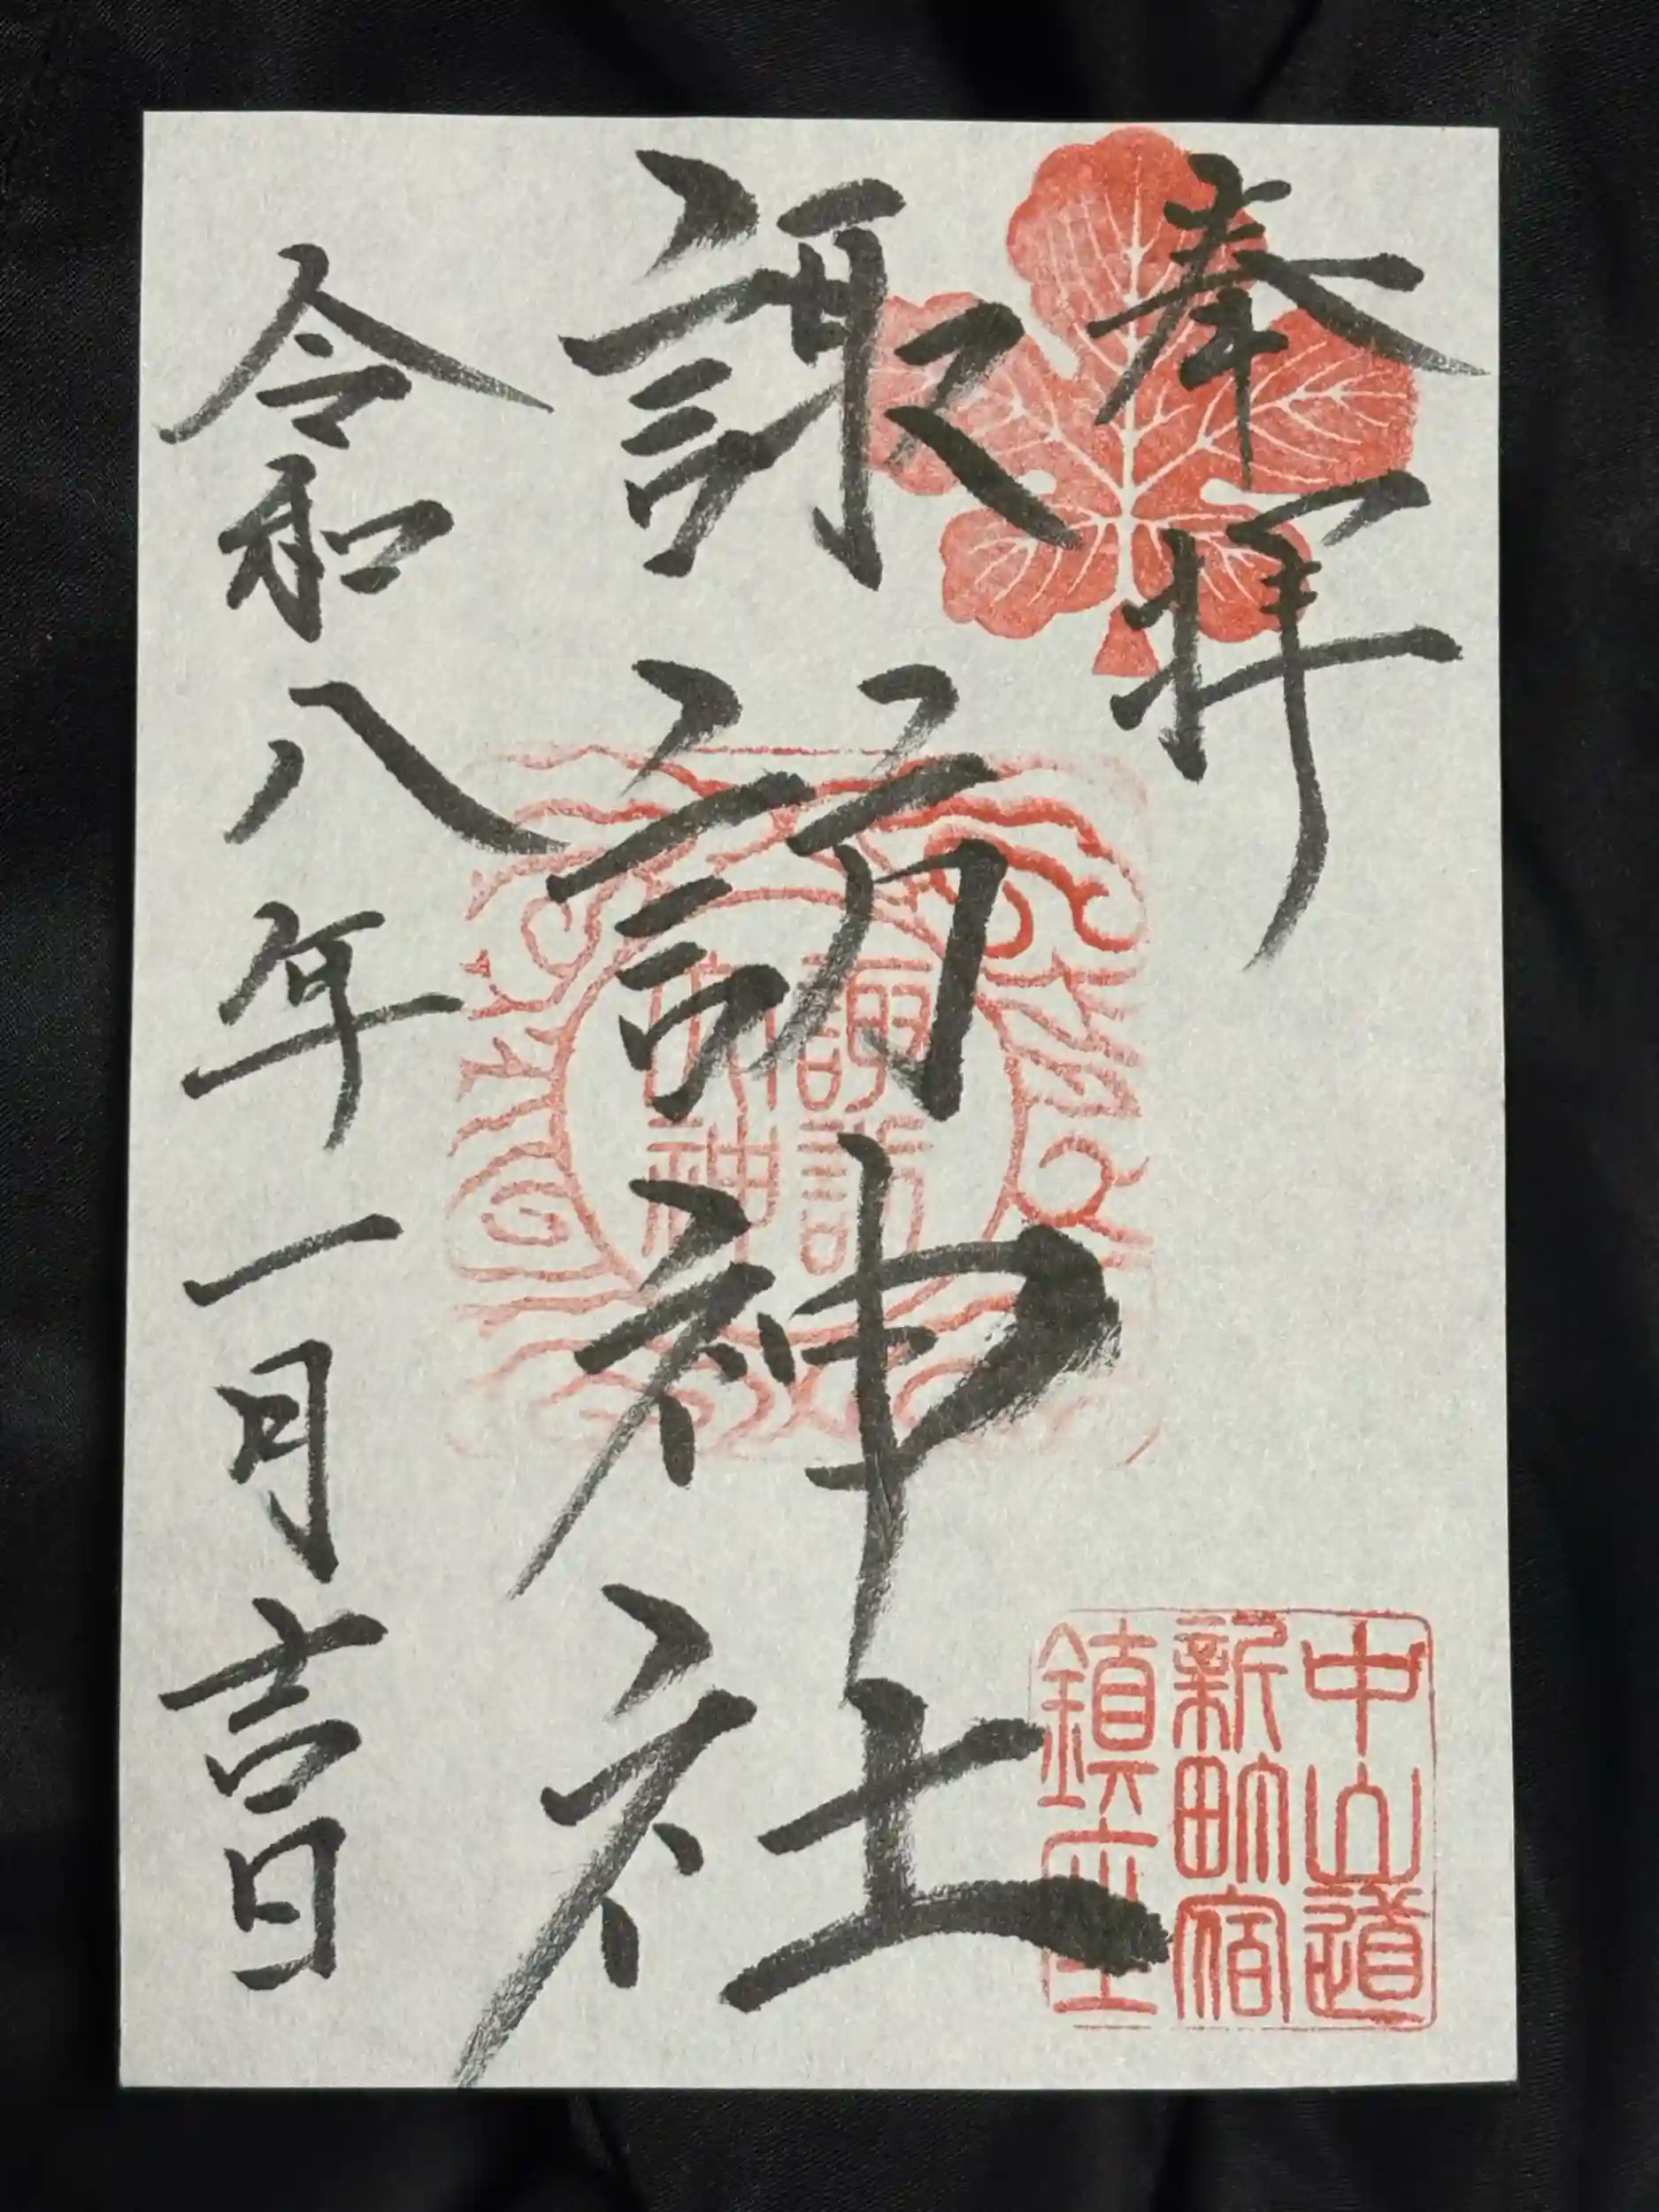 奉拝
中山道
新町宿
鎮座
諏訪神社
諏訪
神
令和八年一月吉日